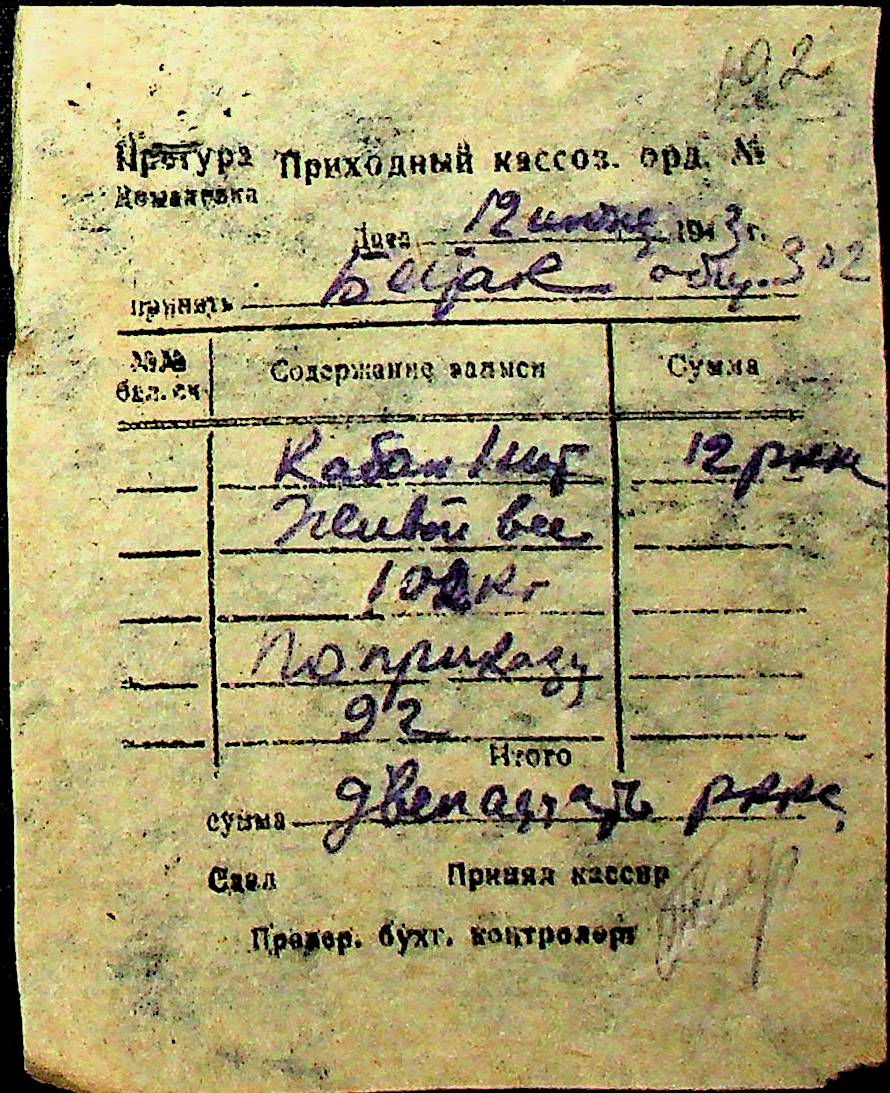 192
Претура Приходный кассов. орд. №
Доманевка
Дата 12 июня 1943 г.
принять Бецак 302
№№ Содержание записи Сумма
бал. сч.
Кабан 1 шт 12 ркк
Живой вес
102 кг
По приказу
92
Итого
сумма двенадцать ркк
Сдал Принял кассир
Провер. бухг. контролер